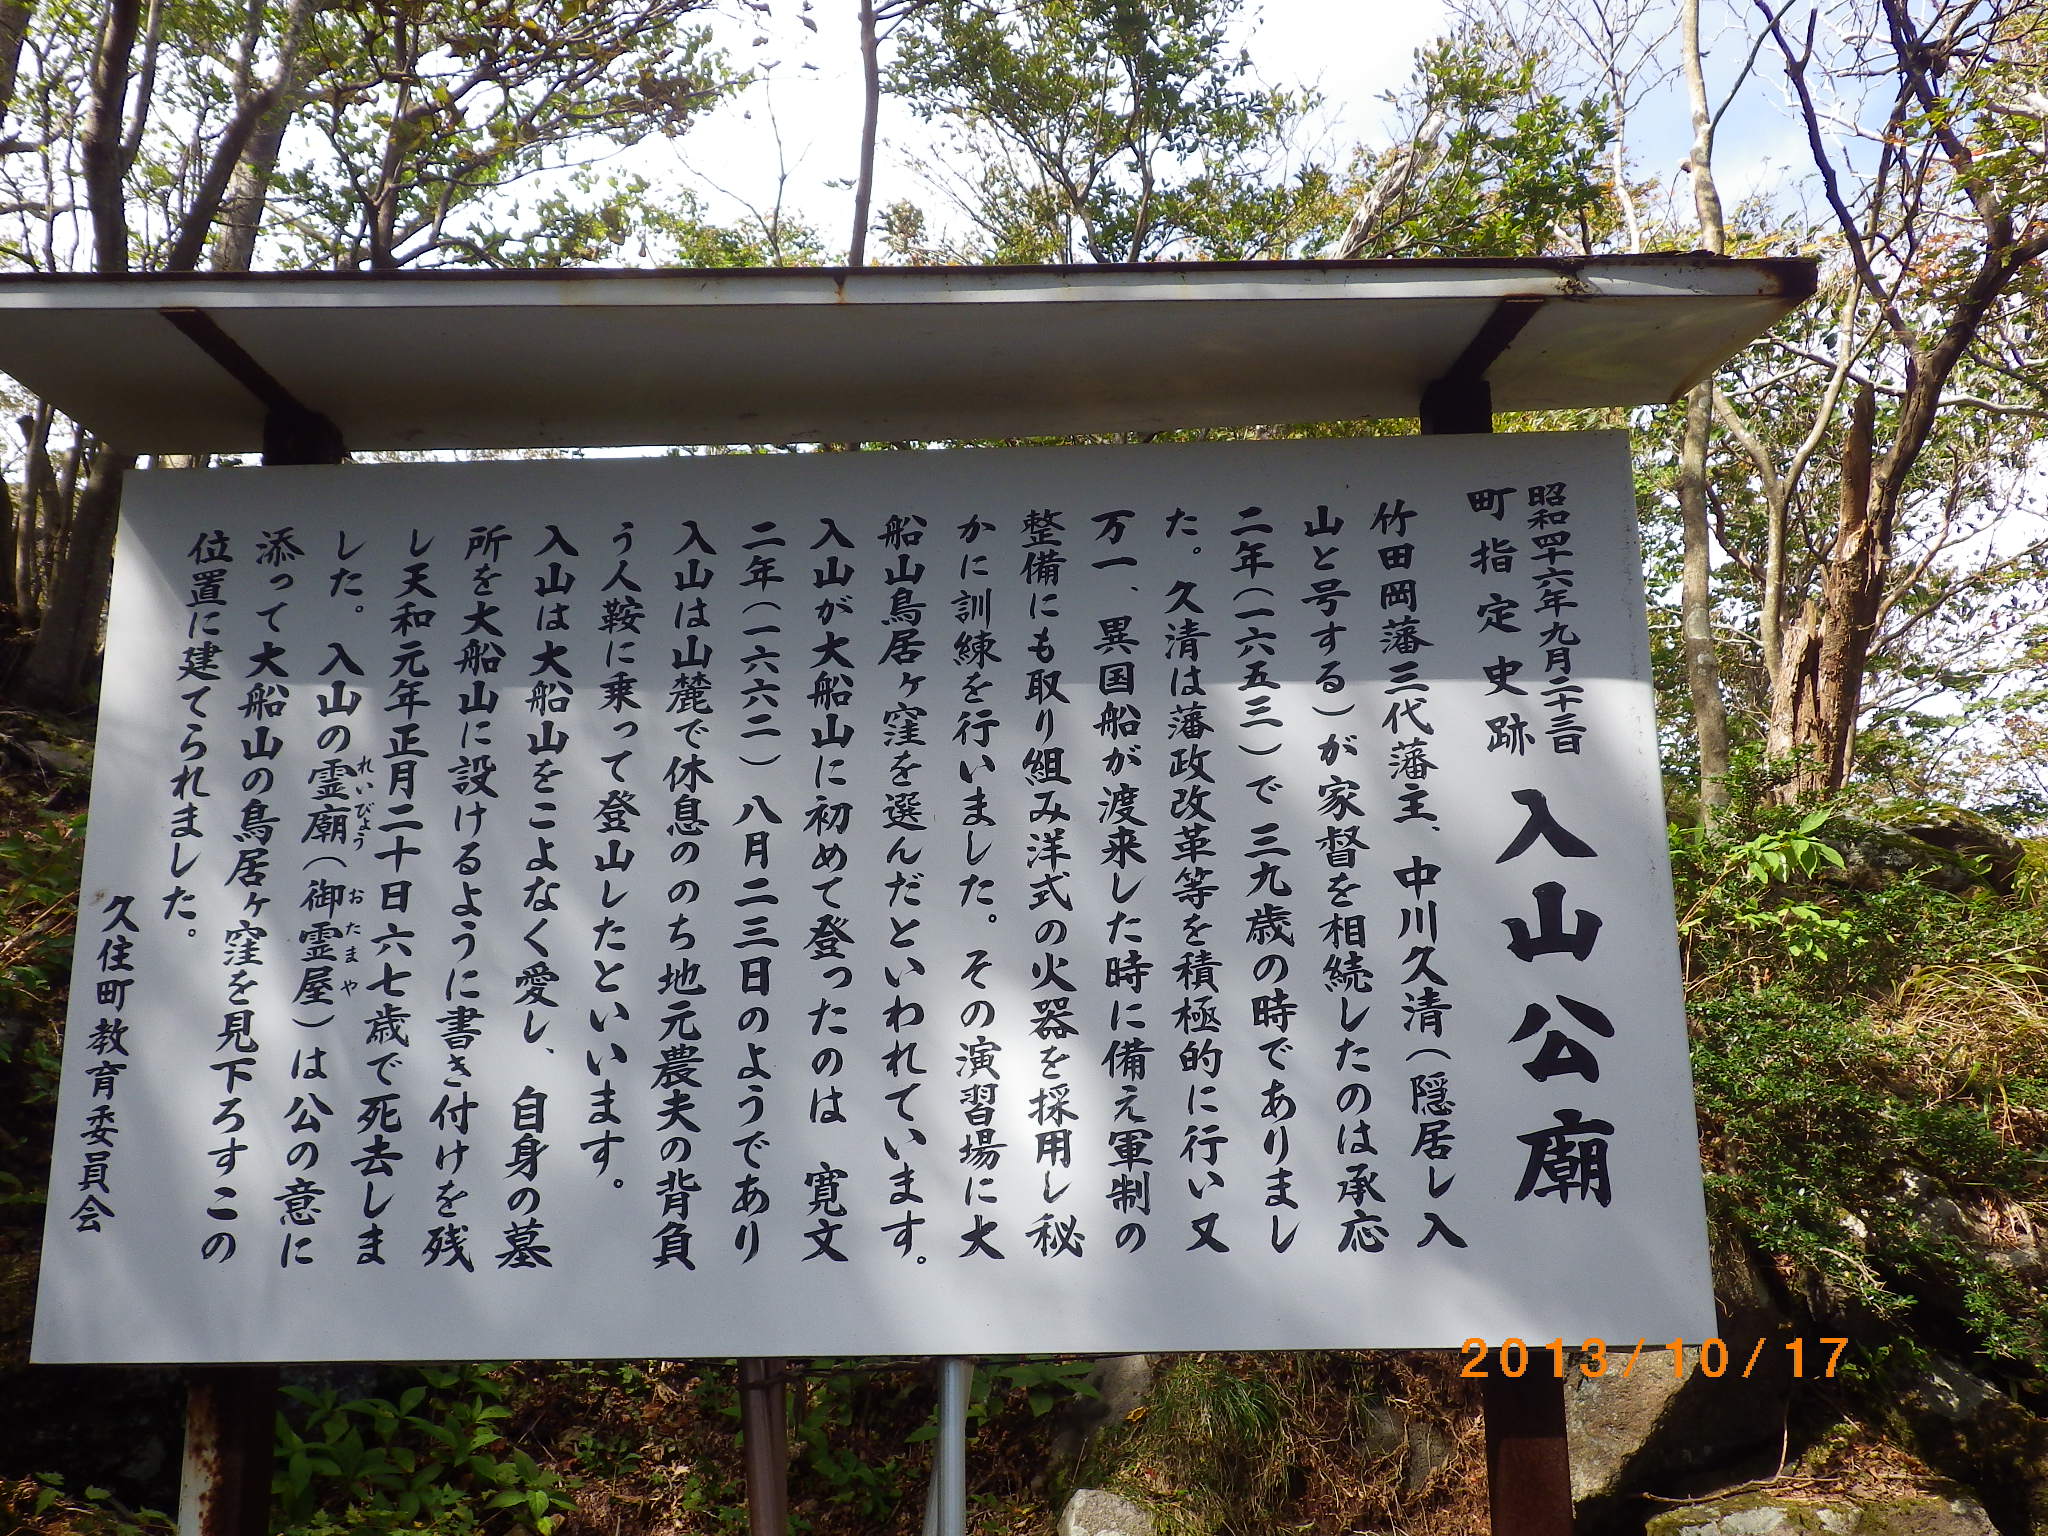 昭和四十六年九月二十三日
町指定史跡 入山公廟
竹田岡藩三代藩主、中川久清(隠居し入
山と号する)が家督を相続したのは承応
二年(一六五三)で三九歳の時でありまし
た。久清は藩政改革等を積極的に行い又
万一、異国船が渡来した時に備え軍制の
整備にも取り組み洋式の火器を採用し秘
かに訓練を行いました。その演習場に大
船山鳥居ヶ窪を選んだといわれています。
入山が大船山に初めて登ったのは 寛文
二年(一六六二)八月二三日のようであり
入山は山麓で休息ののち地元農夫の背負
う人鞍に乗って登山したといいます。
入山は大船山をこよなく愛し、自身の墓
所を大船山に設けるように書き付けを残
し天和元年正月二十日六七歳で死去しま
した。入山の霊廟(御霊屋)は公の意に
れいびょう おたまや
添って大船山の鳥居ヶ窪を見下ろすこの
位置に建てられました。
久住町教育委員会
2013/10/17